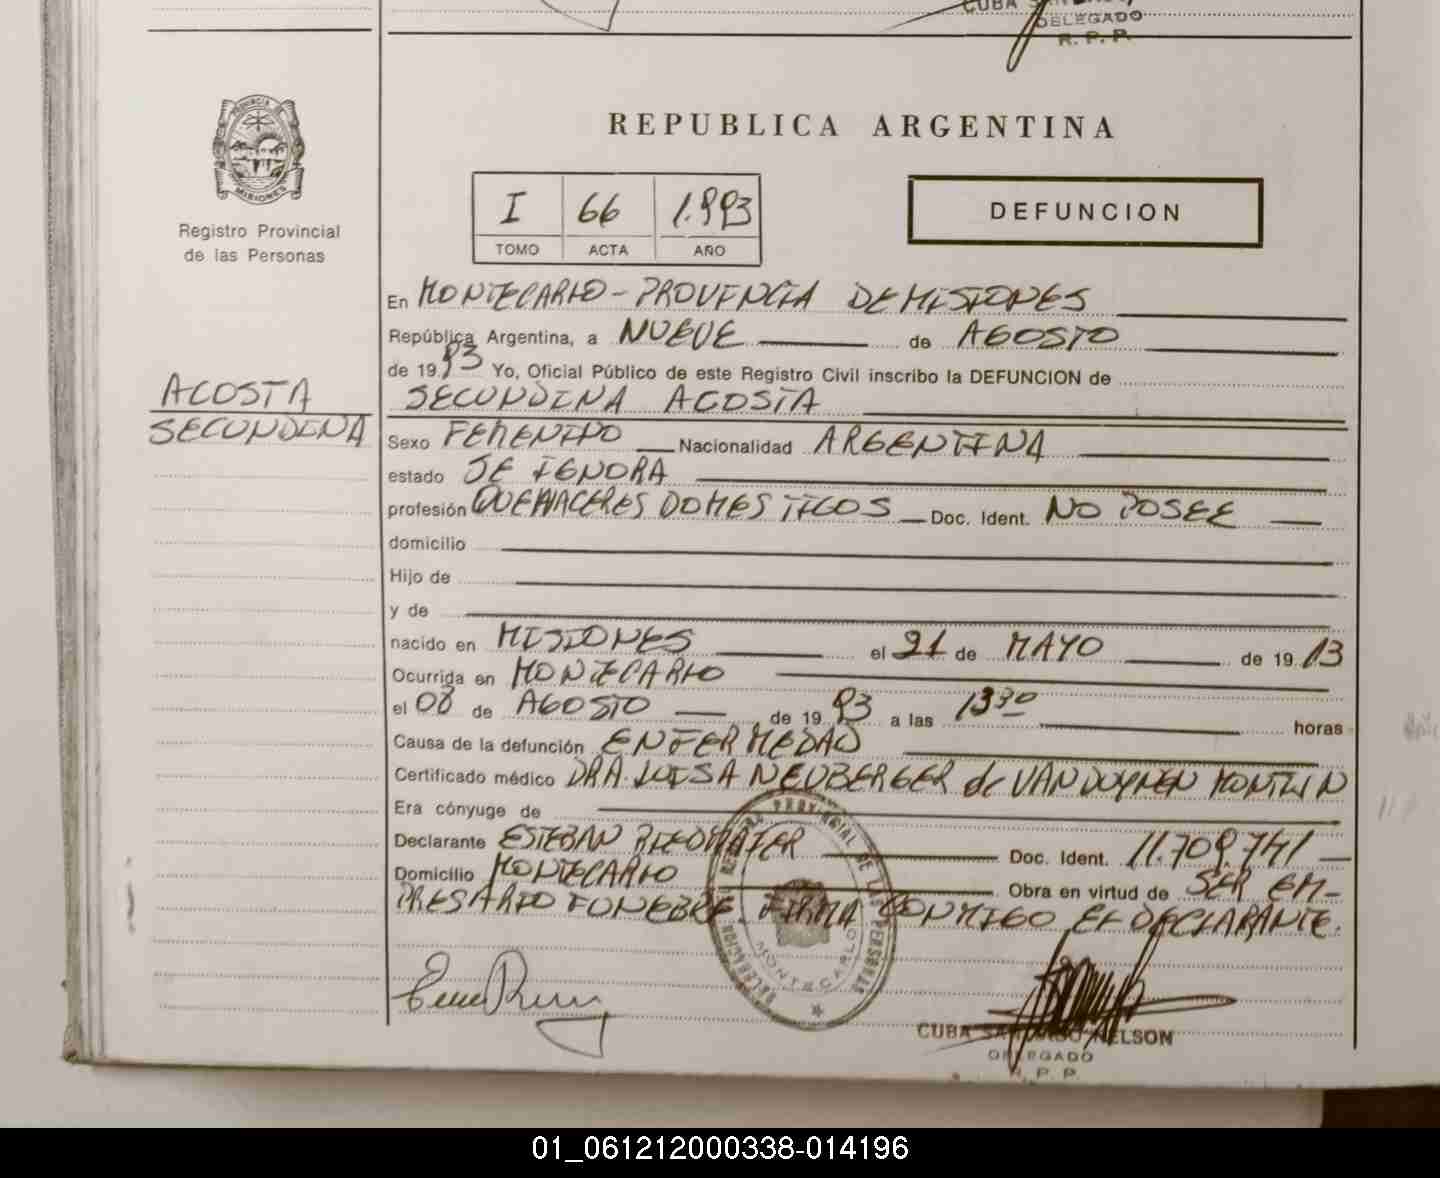 CUBA
DELEGADO
R. P. P.
PROVINCIA DE
MISIONES
Registro Provincial
de las Personas
REPUBLICA ARGENTINA
I 66 1.993
TOMO ACTA AÑO
DEFUNCION
En MONTECARLO - PROVINCIA DE MISIONES
República Argentina, a NUEVE de AGOSTO
de 19 93 Yo, Oficial Público de este Registro Civil inscribo la DEFUNCION de
ACOSTA
SECUNDINA
SECUNDINA ACOSTA
Sexo FEMENINO Nacionalidad ARGENTINA
estado SE IGNORA
profesión QUEHACERES DOMESTICOS Doc. Ident. NO POSEE
domicilio
Hijo de
y de
nacido en MISIONES el 21 de MAYO de 19 13
Ocurrida en MONTECARLO
el 08 de AGOSTO de 19 93 a las 1330 horas
Causa de la defunción ENFERMEDAD
Certificado médico DRA. LUISA NEUBERGER de VAN
Era cónyuge de
Declarante ESTEBAN Doc. Ident. 11.709.741
Domicilio MONTECARLO Obra en virtud de SER EM-
PRESARIO FUNEBRE. FIRMA CONMIGO EL DECLARANTE.
DELEGACION REGISTRO PROVINCIAL DE LAS PERSONAS
MONTECARLO
CUBA SANTIAGO NELSON
DELEGADO
R. P. P.
01_061212000338-014196